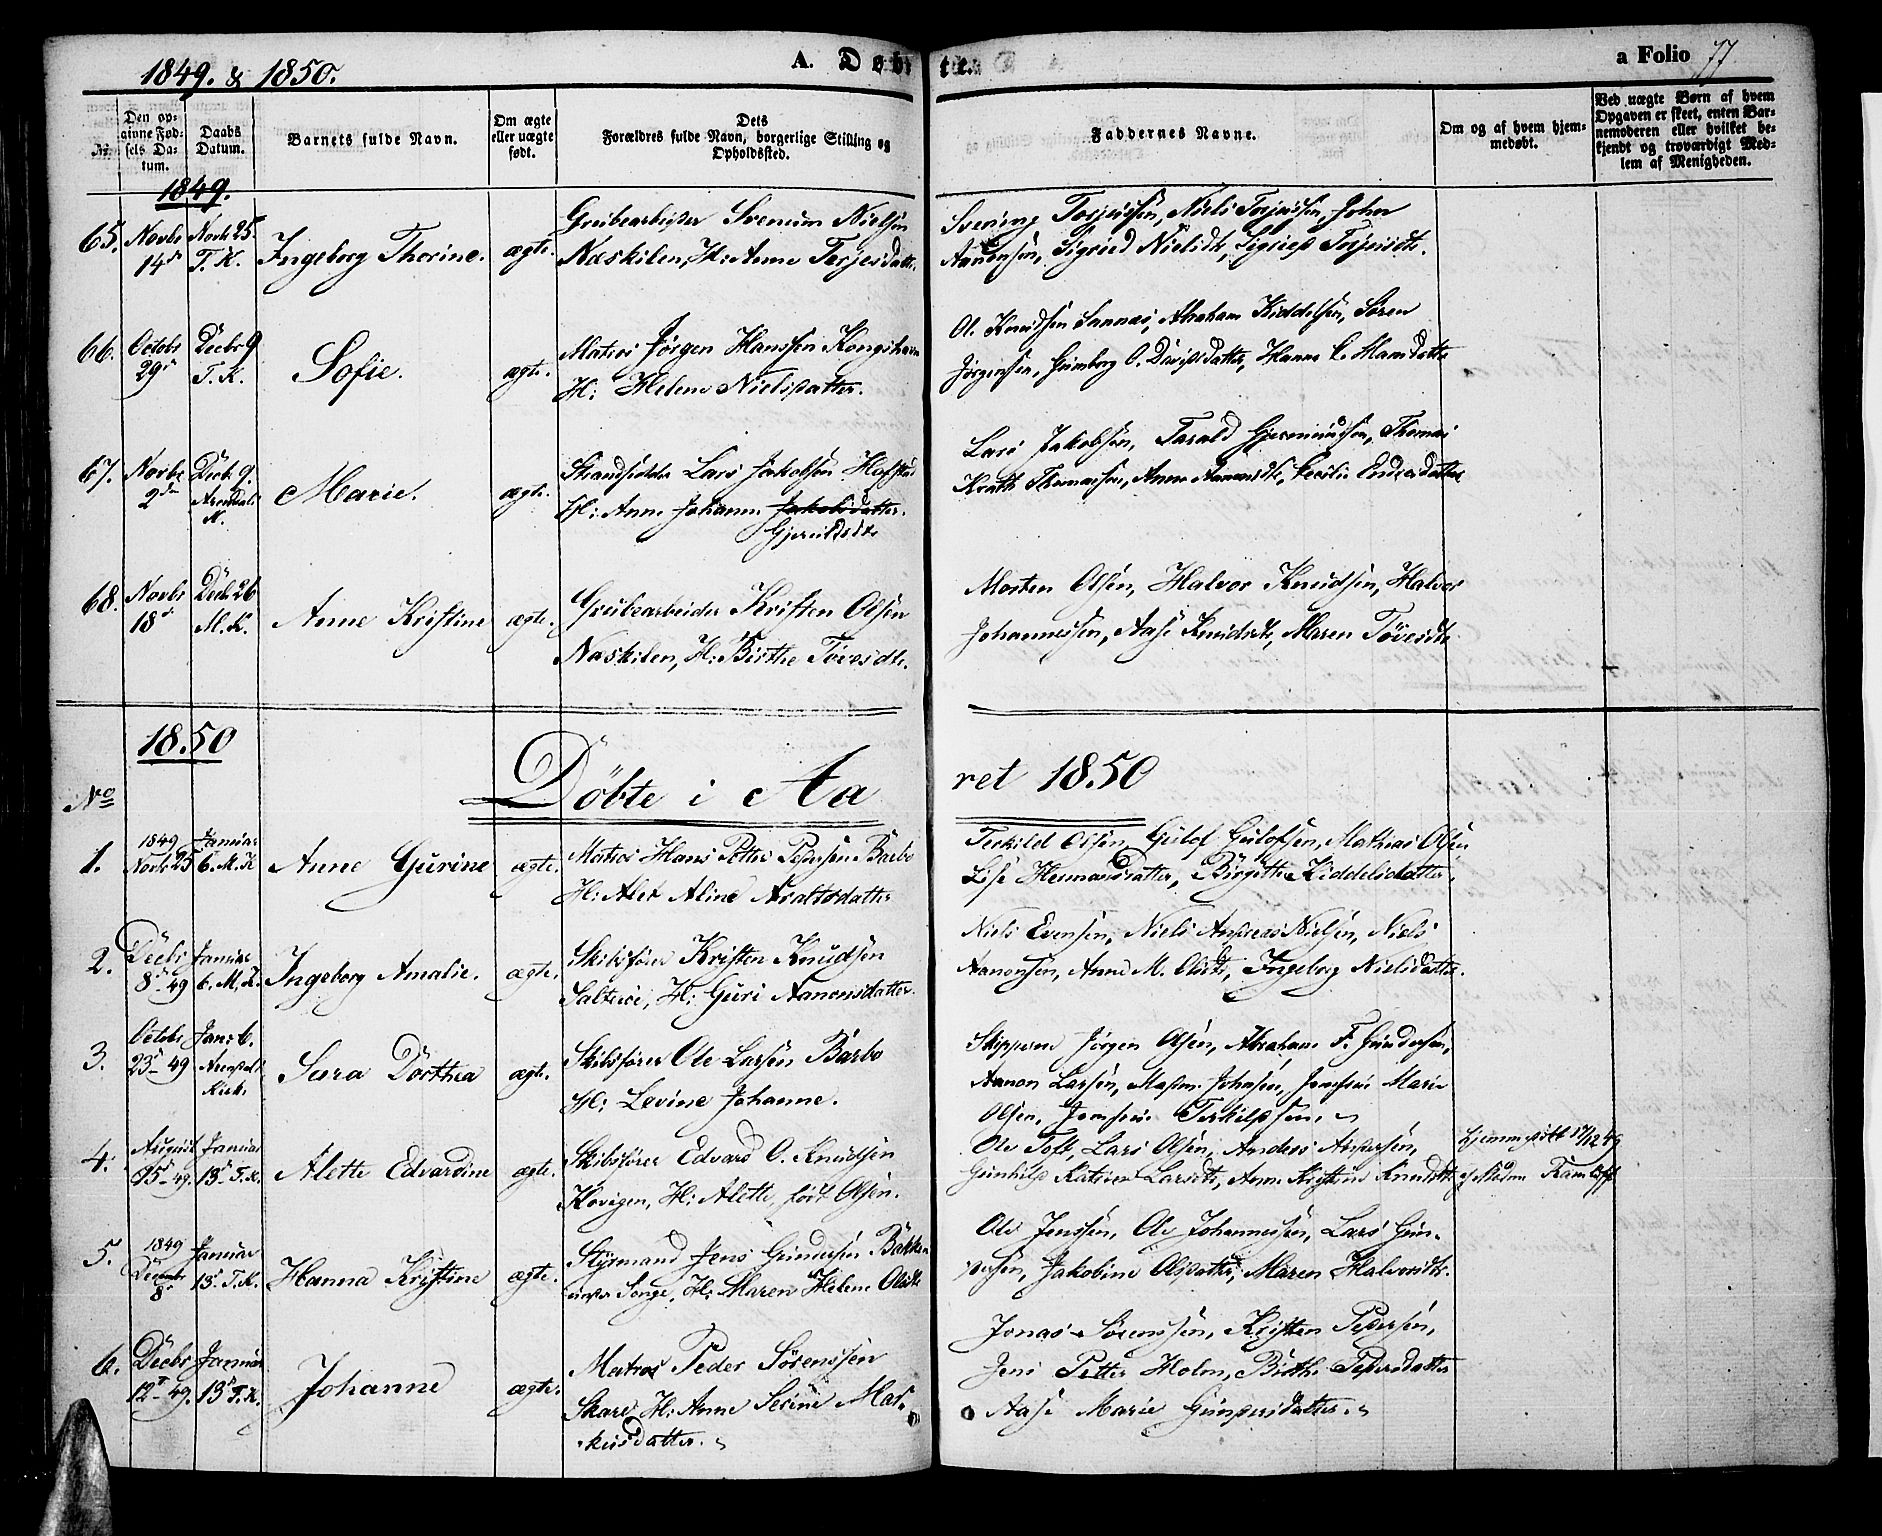 1849. & 1850.
A. Døbte.
a Folio 77
No.
Den opginne Fødsels Datum.
Daabs Datum.
Barnets fulde Navn.
Om ægte eller uægte født.
Dets Forældres fulde Navn, borgerlige Stilling og Opholdssted.
Faddernes Navne.
Om og af hvem hjemmedøbt.
Ved uægte Børn af hvem Opgaven er skeet, enten Barnemoderen eller hvilket bekjendt og troværdigt Medlem af Menigheden.
1849.
65. Novbr 14de Novbr 25. T. K. Ingeborg Thorine. ægte. Grubearbeider Svenum Nielsen
Næskilen, H: Anne Terjesdatter.
Svenning Torjussen, Niels Torjussen, John
Aanensen, Sigried Nielsdtr, Sigried Torjusdtr.
66. Octobr 29de Decbr 9 T. K. Sofie. ægte. Matros Jørgen Hanssen Kongshavn
H: Helene Nielsdatter.
Ol. Knudsen Sannæs, Abraham Kiddelsen, Søren
Jørgensen, Gunborg O. Davidsdatter, Hanne C. Hansdatter
67. Novbr 2den Decbr 9. Arendals K. Marie. ægte. Strandsidder Lars Jakobsen
H: Anne Johanne Jakobsdatter.
Lars Jakobsen, Tarald Gjermundsen, Thomas
Krath Thomassen, Anne Aanensdtr, Cecilie Endresdatter
68. Novbr 18de Decbr 26 M. K. Anne Kristine ægte. Grubearbeider Kristen Olsen
Næskilen, H: Birthe Tovesdtr.
Morten Olsen, Halvor Knudsen, Halvor
Johannessen, Aase Knudsdtr, Maren Tovesdtr
1850
Döbte i Aaret 1850
No
1. 1849 Novbr 25 Januar 6. M. K Anne Gurine ægte. Matros Hans Petter Pedersen Barbo
H: Alet Aline
Terkild Olsen, Gulof Gulofsen, Mathias Olsen
Lise Hermansdatter, Birgitte Kiddelsdatter.
2. Decbr 8de 49 Januar 6. M. K. Ingeborg Amalie. ægte. Skibsfører Kristen Knudsen
Salterøe, H: Guri Aanonsdatter.
Niels Evensen, Niels Andreas Nielsen, Niels
Aanonsen, Anne M. Olsdtr, Ingeborg Nielsdatter.
3. Octobr 23de 49 Janr 6. Arendals Kirk. Sara Dorthea ægte. Skibsfører Ole Larsen Barbo
H: Levine Johanne.
Skipperne Jørgen Olsen, Abraham F. Gundersen,
Aanon Larsen, Madm. Johnsen, Jomfrue Marie
Olsen, Jomfrue Terkildsen.
4. August 15de 49. Januar 13de T. K. Alette Edvardine ægte. Skibsfører Edvard O. Knudsen
H: Alette, født Olsen.
Ole Toft, Lars Olsen, Anders Andersen,
Gunhild Katrine Larsdtr, Anne Kristine Knudsdtr
Hjemmedøbt 17/12 49
af Madm
5. 1849 Decembr 8de Januar 13de T. K. Hanna Kristine ægte. Styrmand Jens Gundersen Bakken
under Songe, H: Maren Helene Olsdtr
Ole Jenssen, Ole Johannessen, Lars Gundersen,
Jakobine Olsdatter, Maren Halvorsdtr.
6. Decbr 12te 49. Januar 13de T. K. Johanne ægte. Matros Peder Sørenssen
Skare, H: Anne Serine Markusdatter.
Jonas Sørenssen, Kristen Pedersen,
Jens Petter Holm, Birthe Pedersdatter
Aase Marie Gundersdatter.